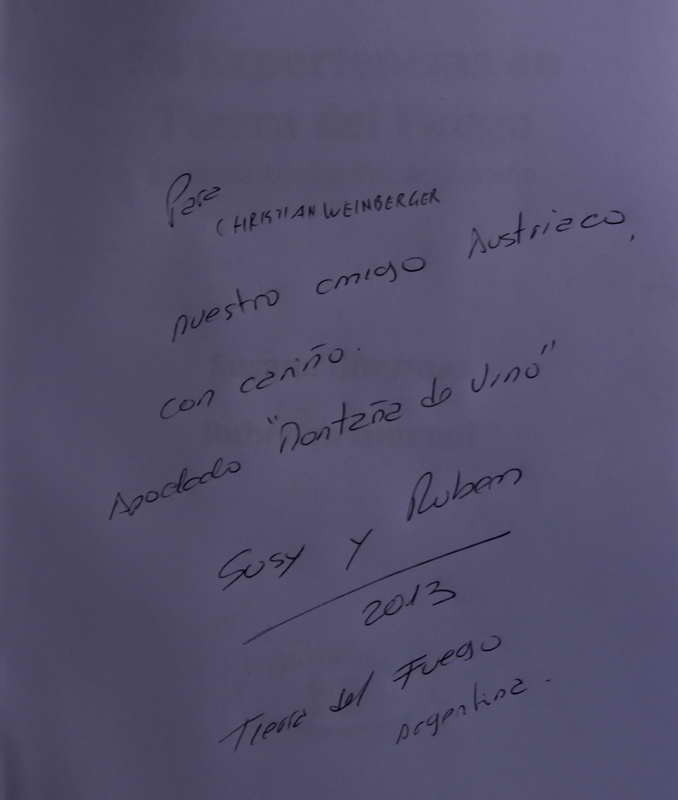 Para
CHRISTIAN WEINBERGER
nuestro amigo Austriaco,
con cariño.
Apodado "Montaña de Vino"
Susy y Ruben
2013
Tierra del Fuego
Argentina.